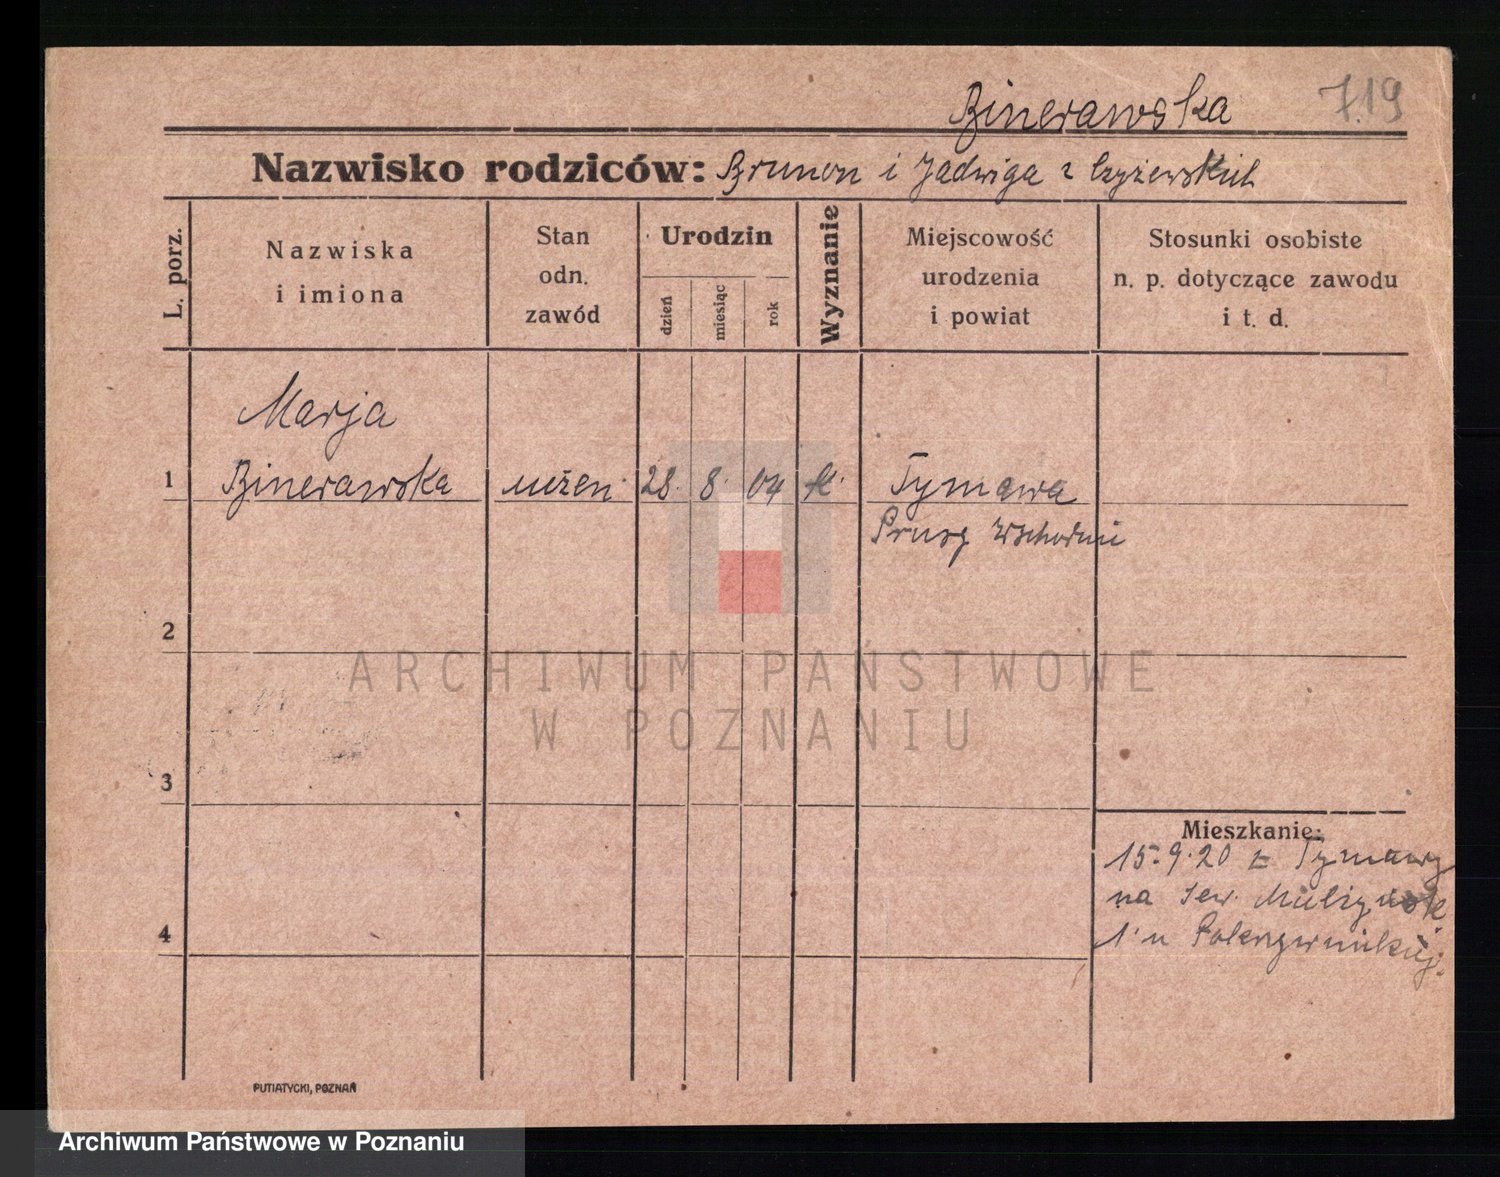 Binerawska 719
Nazwisko rodziców: Brunon i Jadwiga z Czyżewskich
L. porz.
Nazwiska
i imiona
Stan
odn.
zawód
Urodzin
dzień
miesiąc
rok
Wyznanie
Miejscowość
urodzenia
i powiat
Stosunki osobiste
n. p. dotyczące zawodu
i t. d.
Marja
1 Binerawska 28. 8. 04 k. Tymawa
Prusy Wschodnie
2
3
4
Mieszkanie:
15.9.20 z Tymawy
na
1
PUTIATYCKI, POZNAŃ
ARCHIWUM PAŃSTWOWE
W POZNANIU
Archiwum Państwowe w Poznaniu